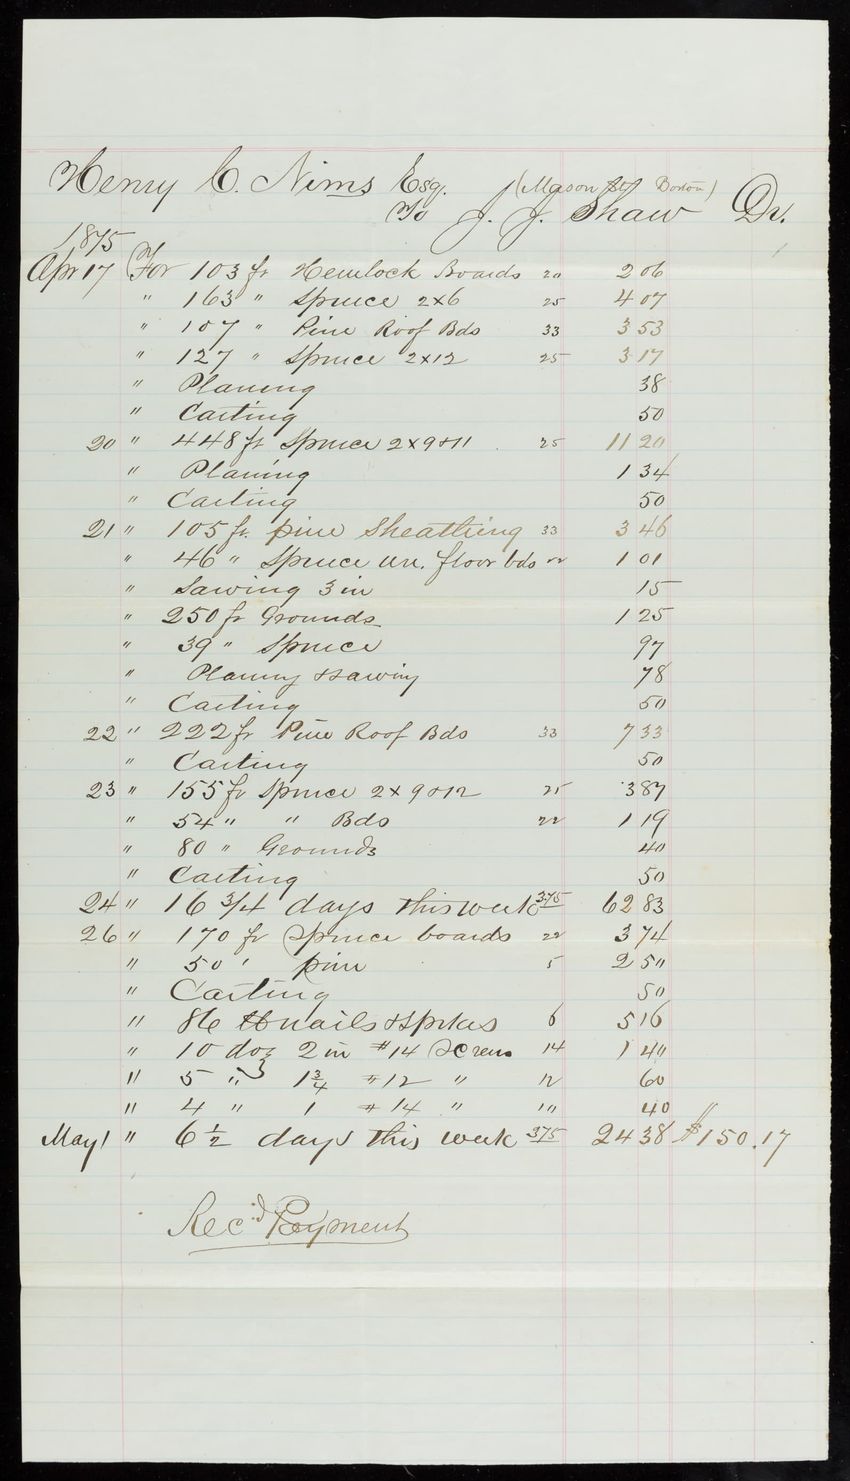 Henry C. Nims Esq. (Mason St. Boston)
To J. J. Shaw Dr.
1875
Apr 17 For 103 ft Hemlock Boards 20 2 06
" 163 " Spruce 2x6 25 4 07
" 107 " Pine Roof Bds 33 3 53
" 127 " Spruce 2x12 25 3 17
" Planing 38
" Carting 50
20 " 448 ft Spruce 2x9&11 25 11 20
" Planing 1 34
" Carting 50
21 " 105 ft. pine Sheathing 33 3 46
" 46 " Spruce un. floor bds 22 1 01
" Sawing 3 in 15
" 250 ft Grounds 1 25
" 39 " Spruce 97
" Planing & sawing 78
" Carting 50
22 " 222 ft Pine Roof Bds 33 7 33
" Carting 50
23 " 155 ft Spruce 2x9&12 25 3 87
" 54 " " Bds 22 1 19
" 80 " Grounds 40
" Carting 50
24 " 16 3/4 days this week 3.75 62 83
26 " 170 ft Spruce boards 22 3 74
" 50 ' pine 5 2 50
" Carting 50
" 86 lb nails & spikes 6 5 16
" 10 doz 2 in #14 Screws 14 1 40
" 5 " 1 3/4 #12 " 12 60
" 4 " 1 #14 " 10 40
May 1 " 6 1/2 days this week 3.75 24 38 $150.17
Rec'd Payment